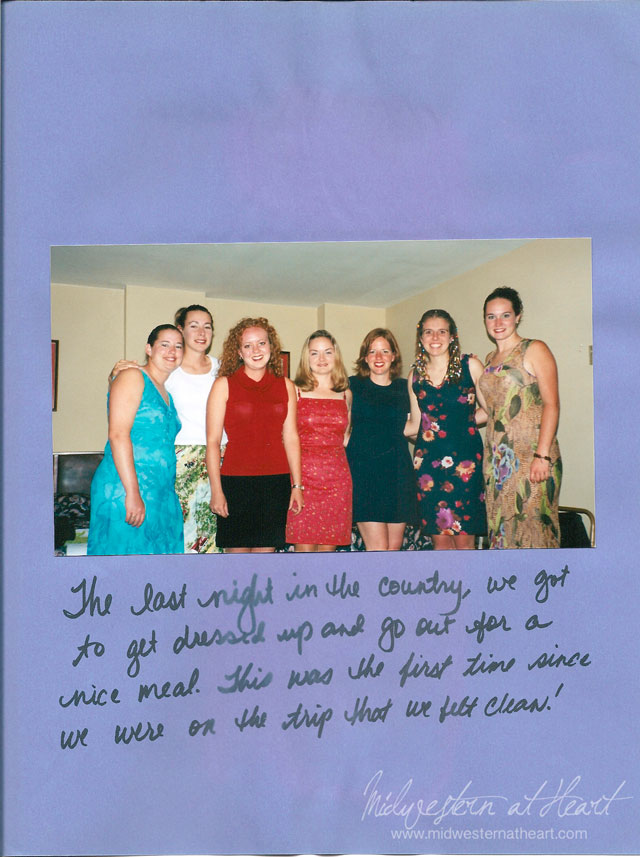 The last night in the country, we got
to get dressed up and go out for a
nice meal. This was the first time since
we were on the trip that we felt clean!
Midwestern at Heart
www.midwesternatheart.com